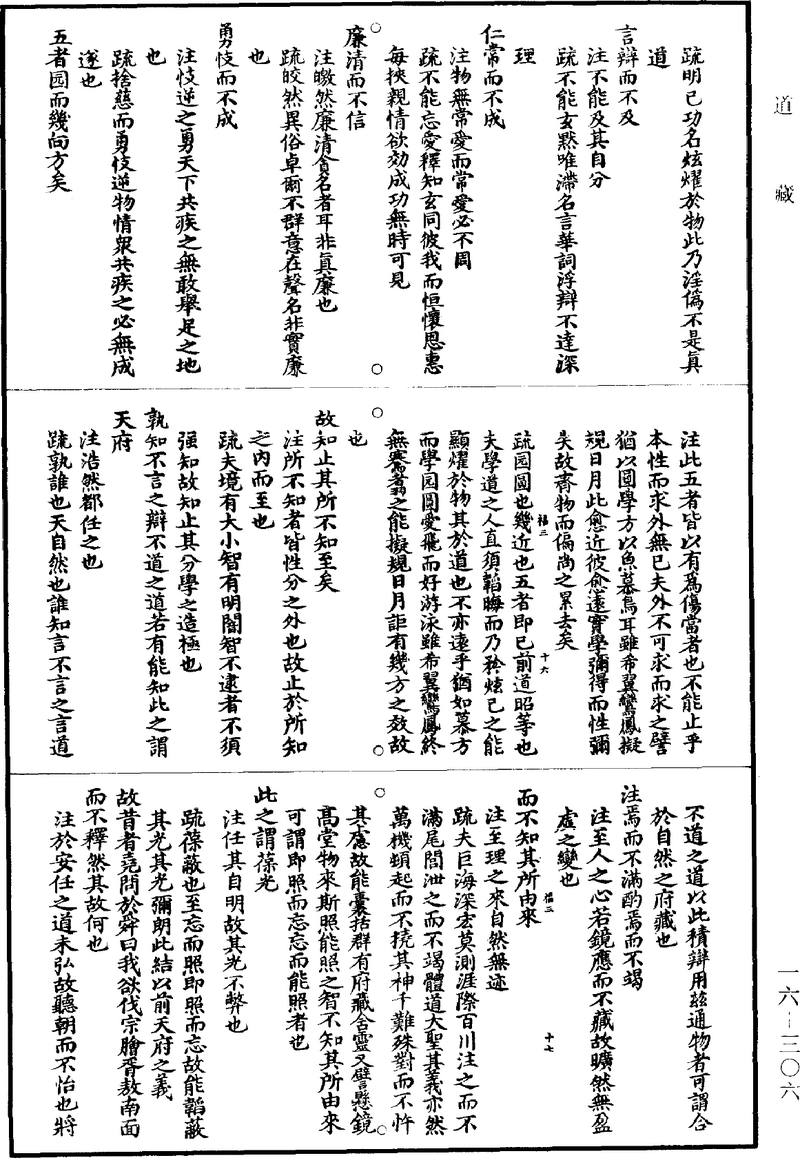 道藏
疏明己功名炫耀於物此乃淫偽不是真
道
言辯而不及
注不能及其自分
疏不能玄黙唯滯名言華詞浮辯不達深
理
仁常而不成
注物無常愛而常愛必不周
疏不能忘愛釋知玄同彼我而恒懷恩惠
每挾親情欲効成功無時可見
廉清而不信
注皦然廉清貪名者耳非真廉也
疏皎然異俗卓爾不群意在聲名非實廉
也
勇忮而不成
注忮逆之勇天下共疾之無敢舉足之地
也
疏捨慈而勇忮逆物情衆共疾之必無成
遂也
五者园而幾向方矣
注此五者皆以有為傷當者也不能止乎
本性而求外無已夫外不可求而求之譬
猶以圓學方以魚慕鳥耳雖希翼鸞鳳擬
規日月此愈近彼愈遠實學彌得而性彌
失故齊物而偏尚之累去矣
疏园圓也幾近也五者即已前道昭等也
福三
十六
夫學道之人直須韜晦而乃矜炫己之能
顯燿於物其於道也不亦遠乎猶如慕方
而學园圓愛飛而好游泳雖希翼鸞鳳終
無騫翥之能擬規日月詎有幾方之效故
也
故知止其所不知至矣
注所不知者皆性分之外也故止於所知
之內而至也
疏夫境有大小智有明闇智不逮者不須
强知故知止其分學之造極也
孰知不言之辯不道之道若有能知此之謂
天府
注浩然都任之也
疏孰誰也天自然也誰知言不言之言道
不道之道以此積辯用玆通物者可謂合
於自然之府藏也
注焉而不滿酌焉而不竭
注至人之心若鏡應而不藏故曠然無盈
虛之變也
而不知其所由來
福三
十七
注至理之來自然無迹
疏夫巨海深宏莫測涯際百川注之而不
滿尾閭泄之而不竭體道大聖其義亦然
萬機頓起而不撓其神千難殊對而不忤
其慮故能囊括群有府藏含靈又譬懸鏡
高堂物來斯照能照之智不知其所由來
可謂即照而忘忘而能照者也
此之謂葆光
注任其自明故其光不弊也
疏葆蔽也至忘而照即照而忘故能韜蔽
其光其光彌朗此結以前天府之義
故昔者堯問於舜曰我欲伐宗膾胥敖南面
而不釋然其故何也
注於安任之道未弘故聽朝而不怡也將
一六-三〇六